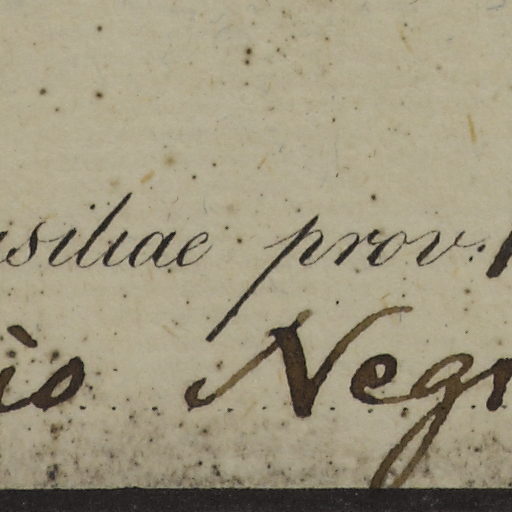 asiliae prov.
io Negr